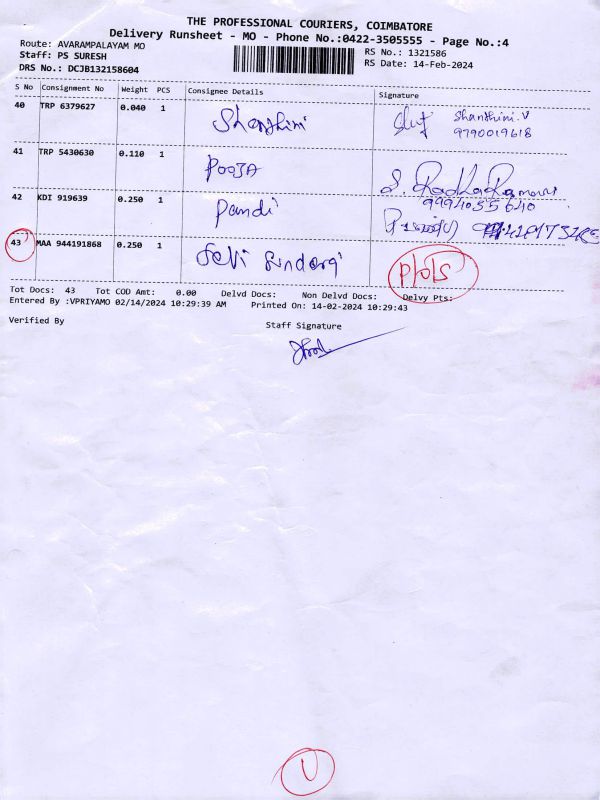 THE PROFESSIONAL COURIERS, COIMBATORE
Delivery Runsheet - MO - Phone No.:0422-3505555 - Page No.:4
Route: AVARAMPALAYAM MO
RS No.: 1321586
Staff: PS SURESH
RS Date: 14-Feb-2024
DRS No.: DCJB132158604
S No Consignment No Weight PCS Consignee Details Signature
40 TRP 6379627 0.040 1 Shanthini Shanthini.V
9790019618
41 TRP 5430630 0.110 1 POOJA S. RadhaRamani
9994055640
42 KDI 919639 0.250 1 Pandi
43 MAA 944191868 0.250 1 Selvi Sundari P/o/s
Tot Docs: 43 Tot COD Amt: 0.00 Delvd Docs: Non Delvd Docs: Delvy Pts:
Entered By :VPRIYAMO 02/14/2024 10:29:39 AM Printed On: 14-02-2024 10:29:43
Verified By
Staff Signature